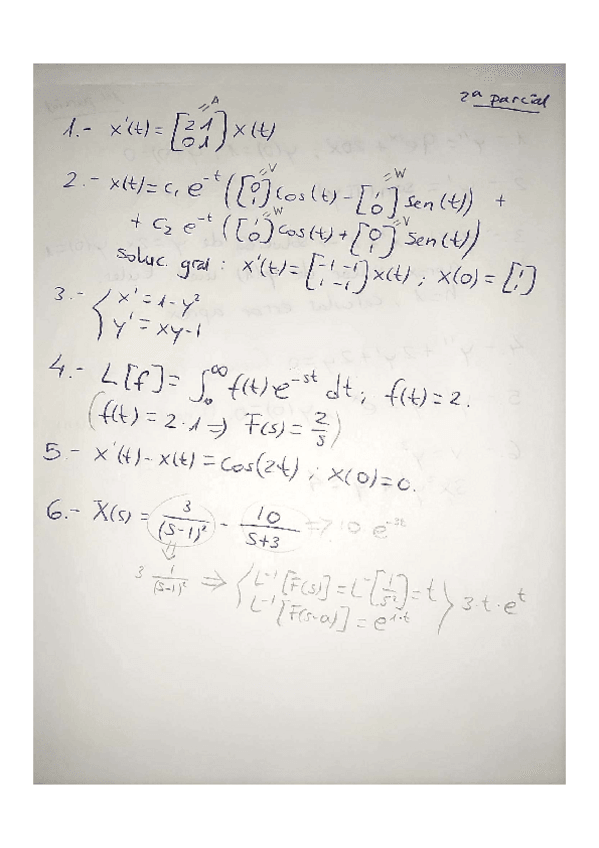 2ª parcial
1.- x'(t) = [2 1; 0 1] x(t) =A
2.- x(t) = c₁ e^-t ([0; 1] cos(t) - [1; 0] sen(t)) + =V =W
+ c₂ e^-t ([1; 0] cos(t) + [0; 1] sen(t)) =W =V
soluc. gral: x'(t) = [1 -1; 1 -1] x(t); x(0) = [1; 1]
3.- { x' = 1 - y²
y' = xy - 1
4.- L[f] = ∫₀^∞ f(t) e^-st dt; f(t) = 2.
(f(t) = 2·1 => F(s) = 2/s)
5.- x'(t) - x(t) = cos(2t); x(0) = 0.
6.- X(s) = 3/(s-1)² - 10/(s+3) => 10 e^-3t
3 1/(s-1)² => { L⁻¹[F(s)] = L⁻[1/s²] = t
L⁻¹[F(s-a)] = e^1·t } 3·t·e^t